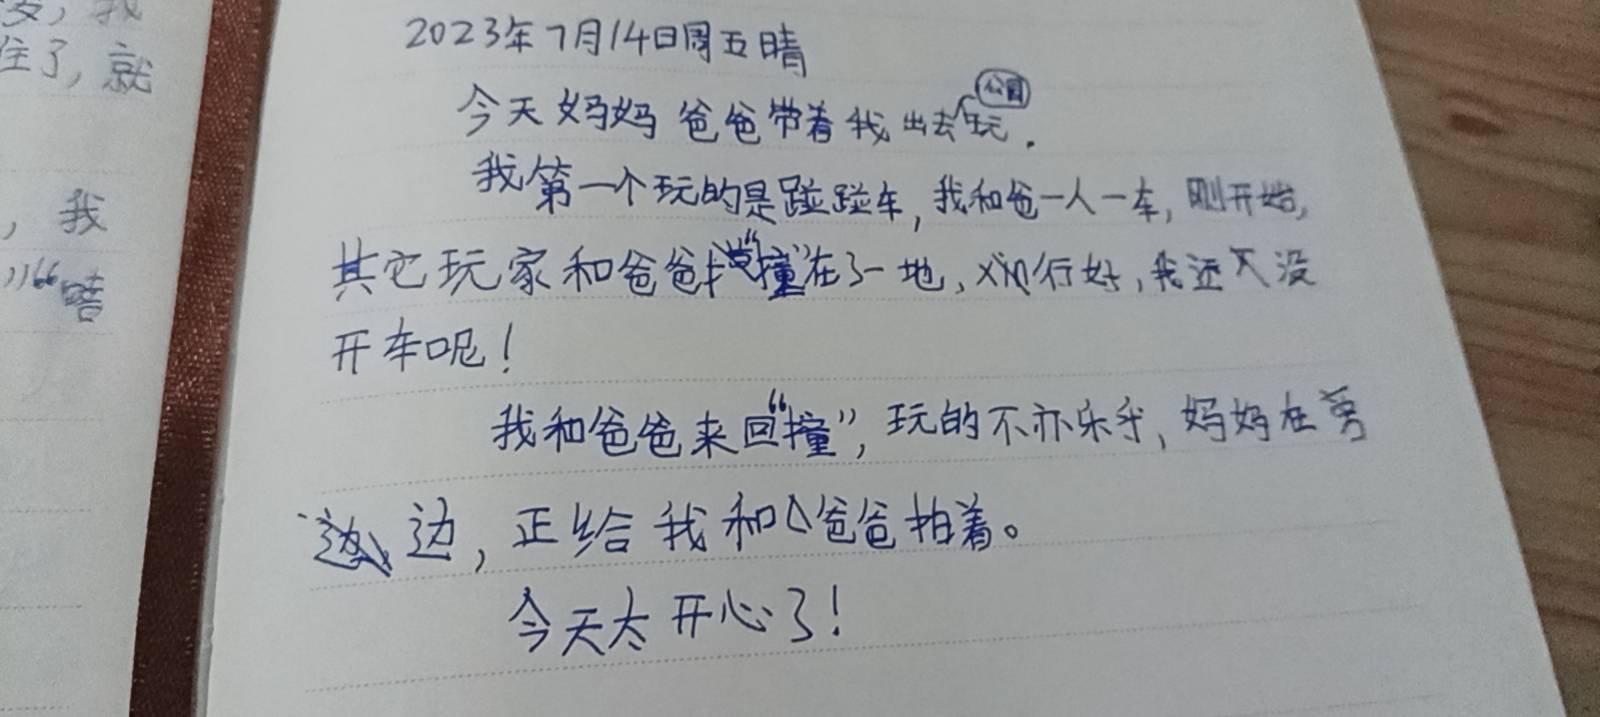 我
住了，就
，我
2023年7月14日周五晴
今天妈妈爸爸带着我出去公园玩.
我第一个玩的是碰碰车，我和爸一人一车，刚开始，
其它玩家和爸爸“撞”在了一地，好，我还没
开车呢！
我和爸爸来回“撞”，玩的不亦乐乎，妈妈在旁
边，正给我和爸爸拍着。
今天太开心了！